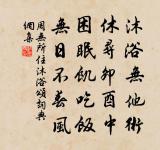 沐浴無他術
休尋卯酉中
困眠飢吃飯
無日不春風
周無所住沐浴頌詞典
網集